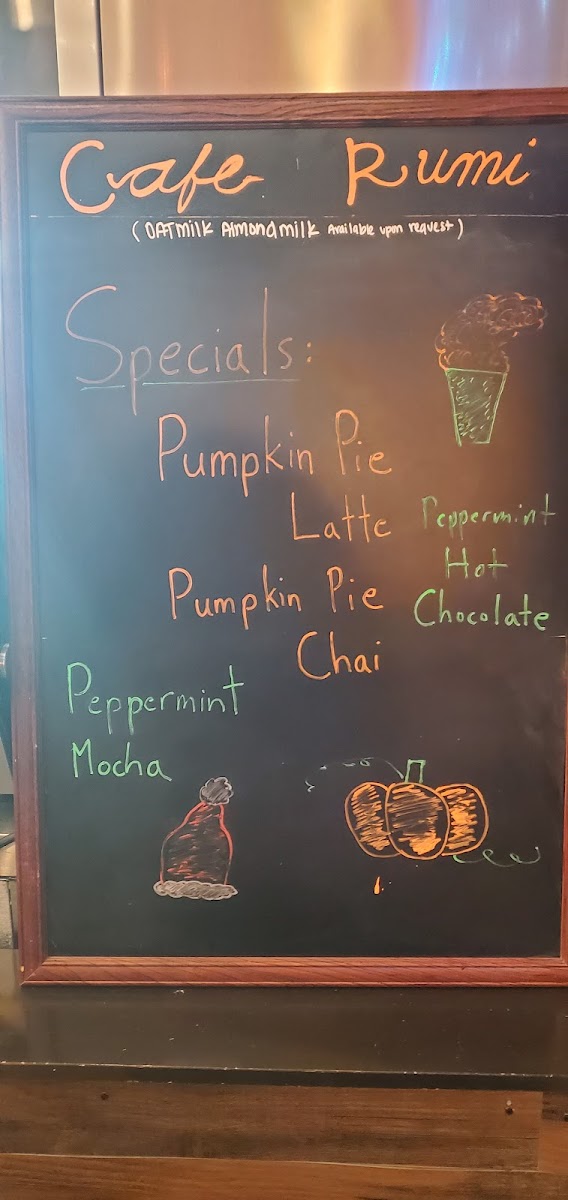 Cafe Rumi
(OATmilk Almondmilk Available upon request)
Specials:
Pumpkin Pie
Latte
Pumpkin Pie
Chai
Peppermint
Hot
Chocolate
Peppermint
Mocha